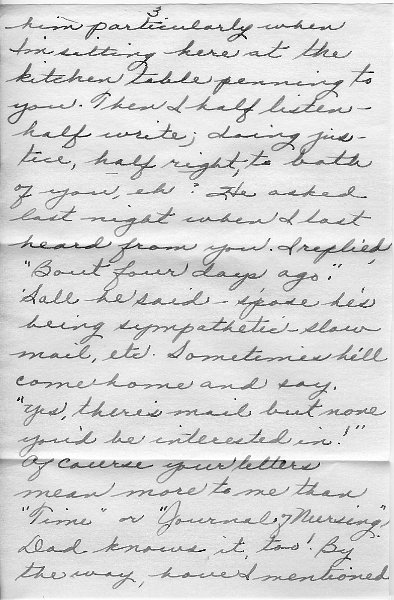 3
him particularly when
I'm sitting here at the
kitchen table penning to
you. Then I half listen-
half write; doing jus-
tice, half right, to both
of you, eh? He asked
last night when I last
heard from you. I replied,
"Bout four days ago."
'Sall he said - spose he's
being sympathetic - slow
mail, etc. Sometimes he'll
come home and say,
"Yes, there's mail but none
you'd be interested in!"
Of course your letters
mean more to me than
"Time" or "Journal of Nursing"!
Dad knows it, too! By
the way, have I mentioned